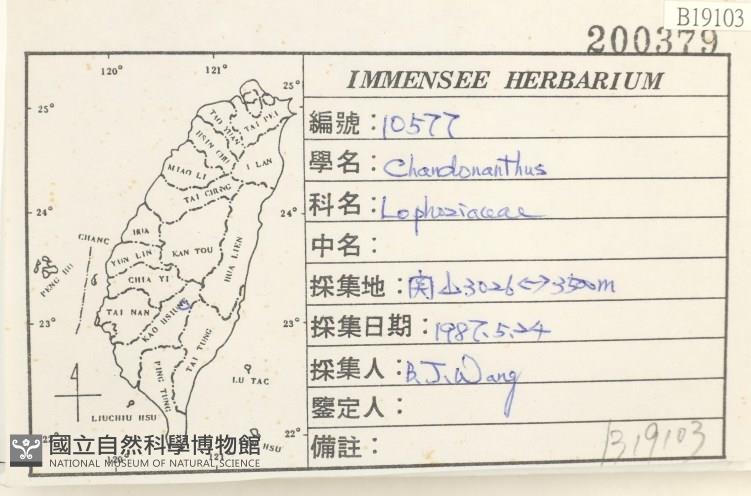 B19103
200379
IMMENSEE HERBARIUM
編號：10577
學名：Chandonanthus
科名：Lophoziaceae
中名：
採集地：関山3026↔3500m
採集日期：1987.5.24
採集人：B.J.Wang
鑒定人：
備註：
B19103
120° 121°
25° 25°
TAI PEI
TAU YUAN
HSIN CHU
I LAN
MIAO LI
TAI CHUNG
24° 24°
CHANG HUA
NAN TOU
HUA LIEN
YUN LIN
PENG HU
CHIA YI
TAI NAN
KAO HSIUNG
23° 23°
TAI TUNG
PING TUNG
LU TAO
LIUCHIU HSU
22° 22°
HSU
120° 121°
國立自然科學博物館
NATIONAL MUSEUM OF NATURAL SCIENCE